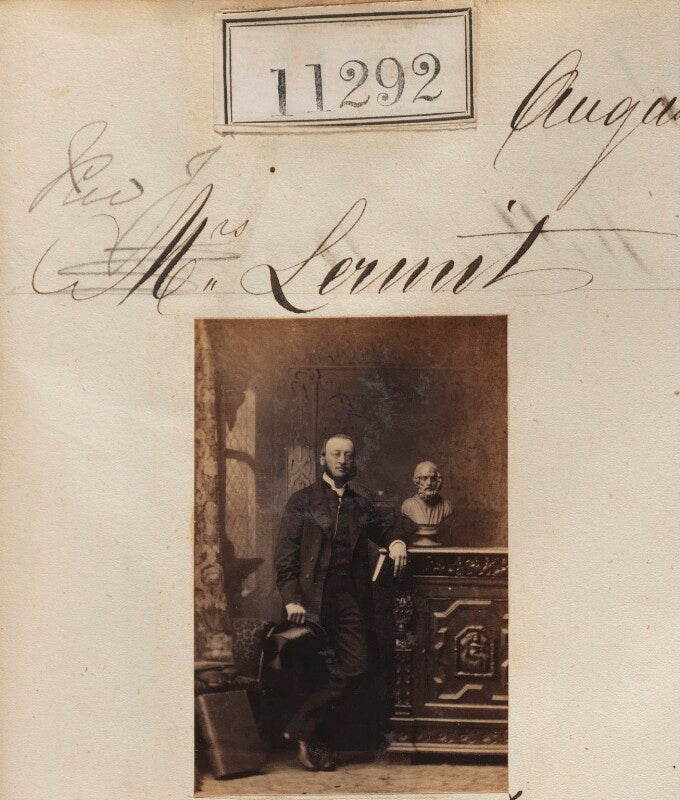 11292
Augu
Rev J
Mrs Lermit